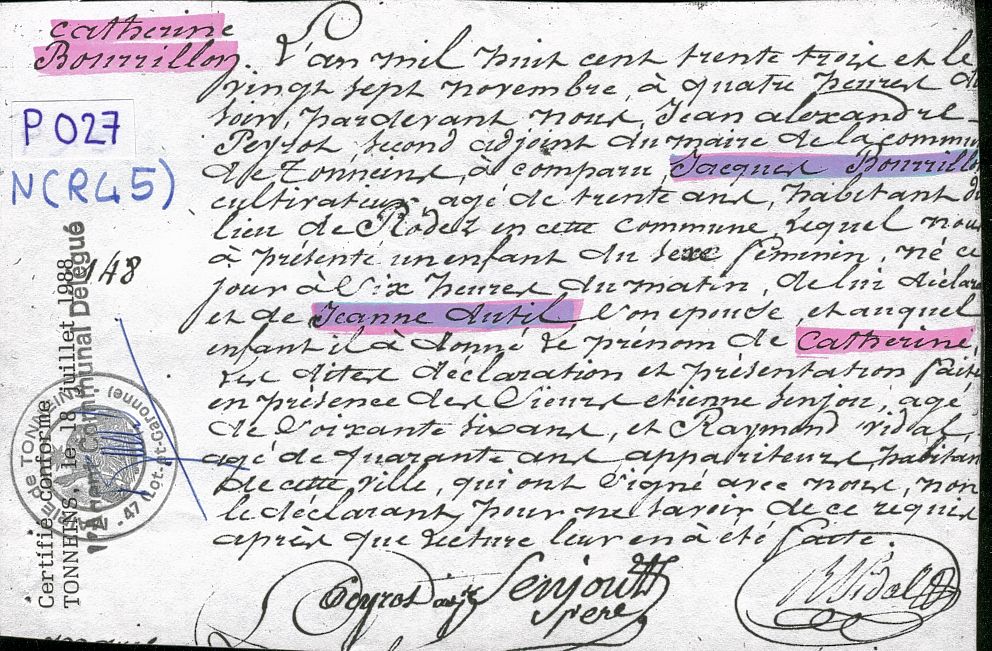 Catherine
Bourrillon.
P 027
N (R45)
148
L'an mil huit cent trente trois et le
vingt sept novembre, à quatre heures du
soir, pardevant nous, Jean alexandre
Peyrot second adjoint du maire de la commun
de Tonneins, à comparu Jacques Bourrillon
cultivateur, agé de trente ans, habitant du
lieu de Rodez en cette commune, Lequel nous
à présenté un enfant du sexe féminin, né ce
jour à Six heures du matin, de lui déclara
et de Jeanne dutil, Son epouse, et auquel
enfant il à donné Le prénom de Catherine,
Les dites déclaration et présentation faites
en présence des Sieurs etienne Senjou, agé
de Soixante six ans, et Raymond Vidal,
agé de quarante ans appariteurs, habitan
de cette ville, qui ont Signé avec nous, non
le déclarant, pour ne savoir de ce requis
après que Lecture leur en à été faite.
Peyrot adj Senjou
père
R Vidal
Certifié conforme
TONNEINS, le 18 juillet 1988
L'Agent Communal Délégué
MAIRIE DE TONNEINS
47 (Lot-et-Garonne)